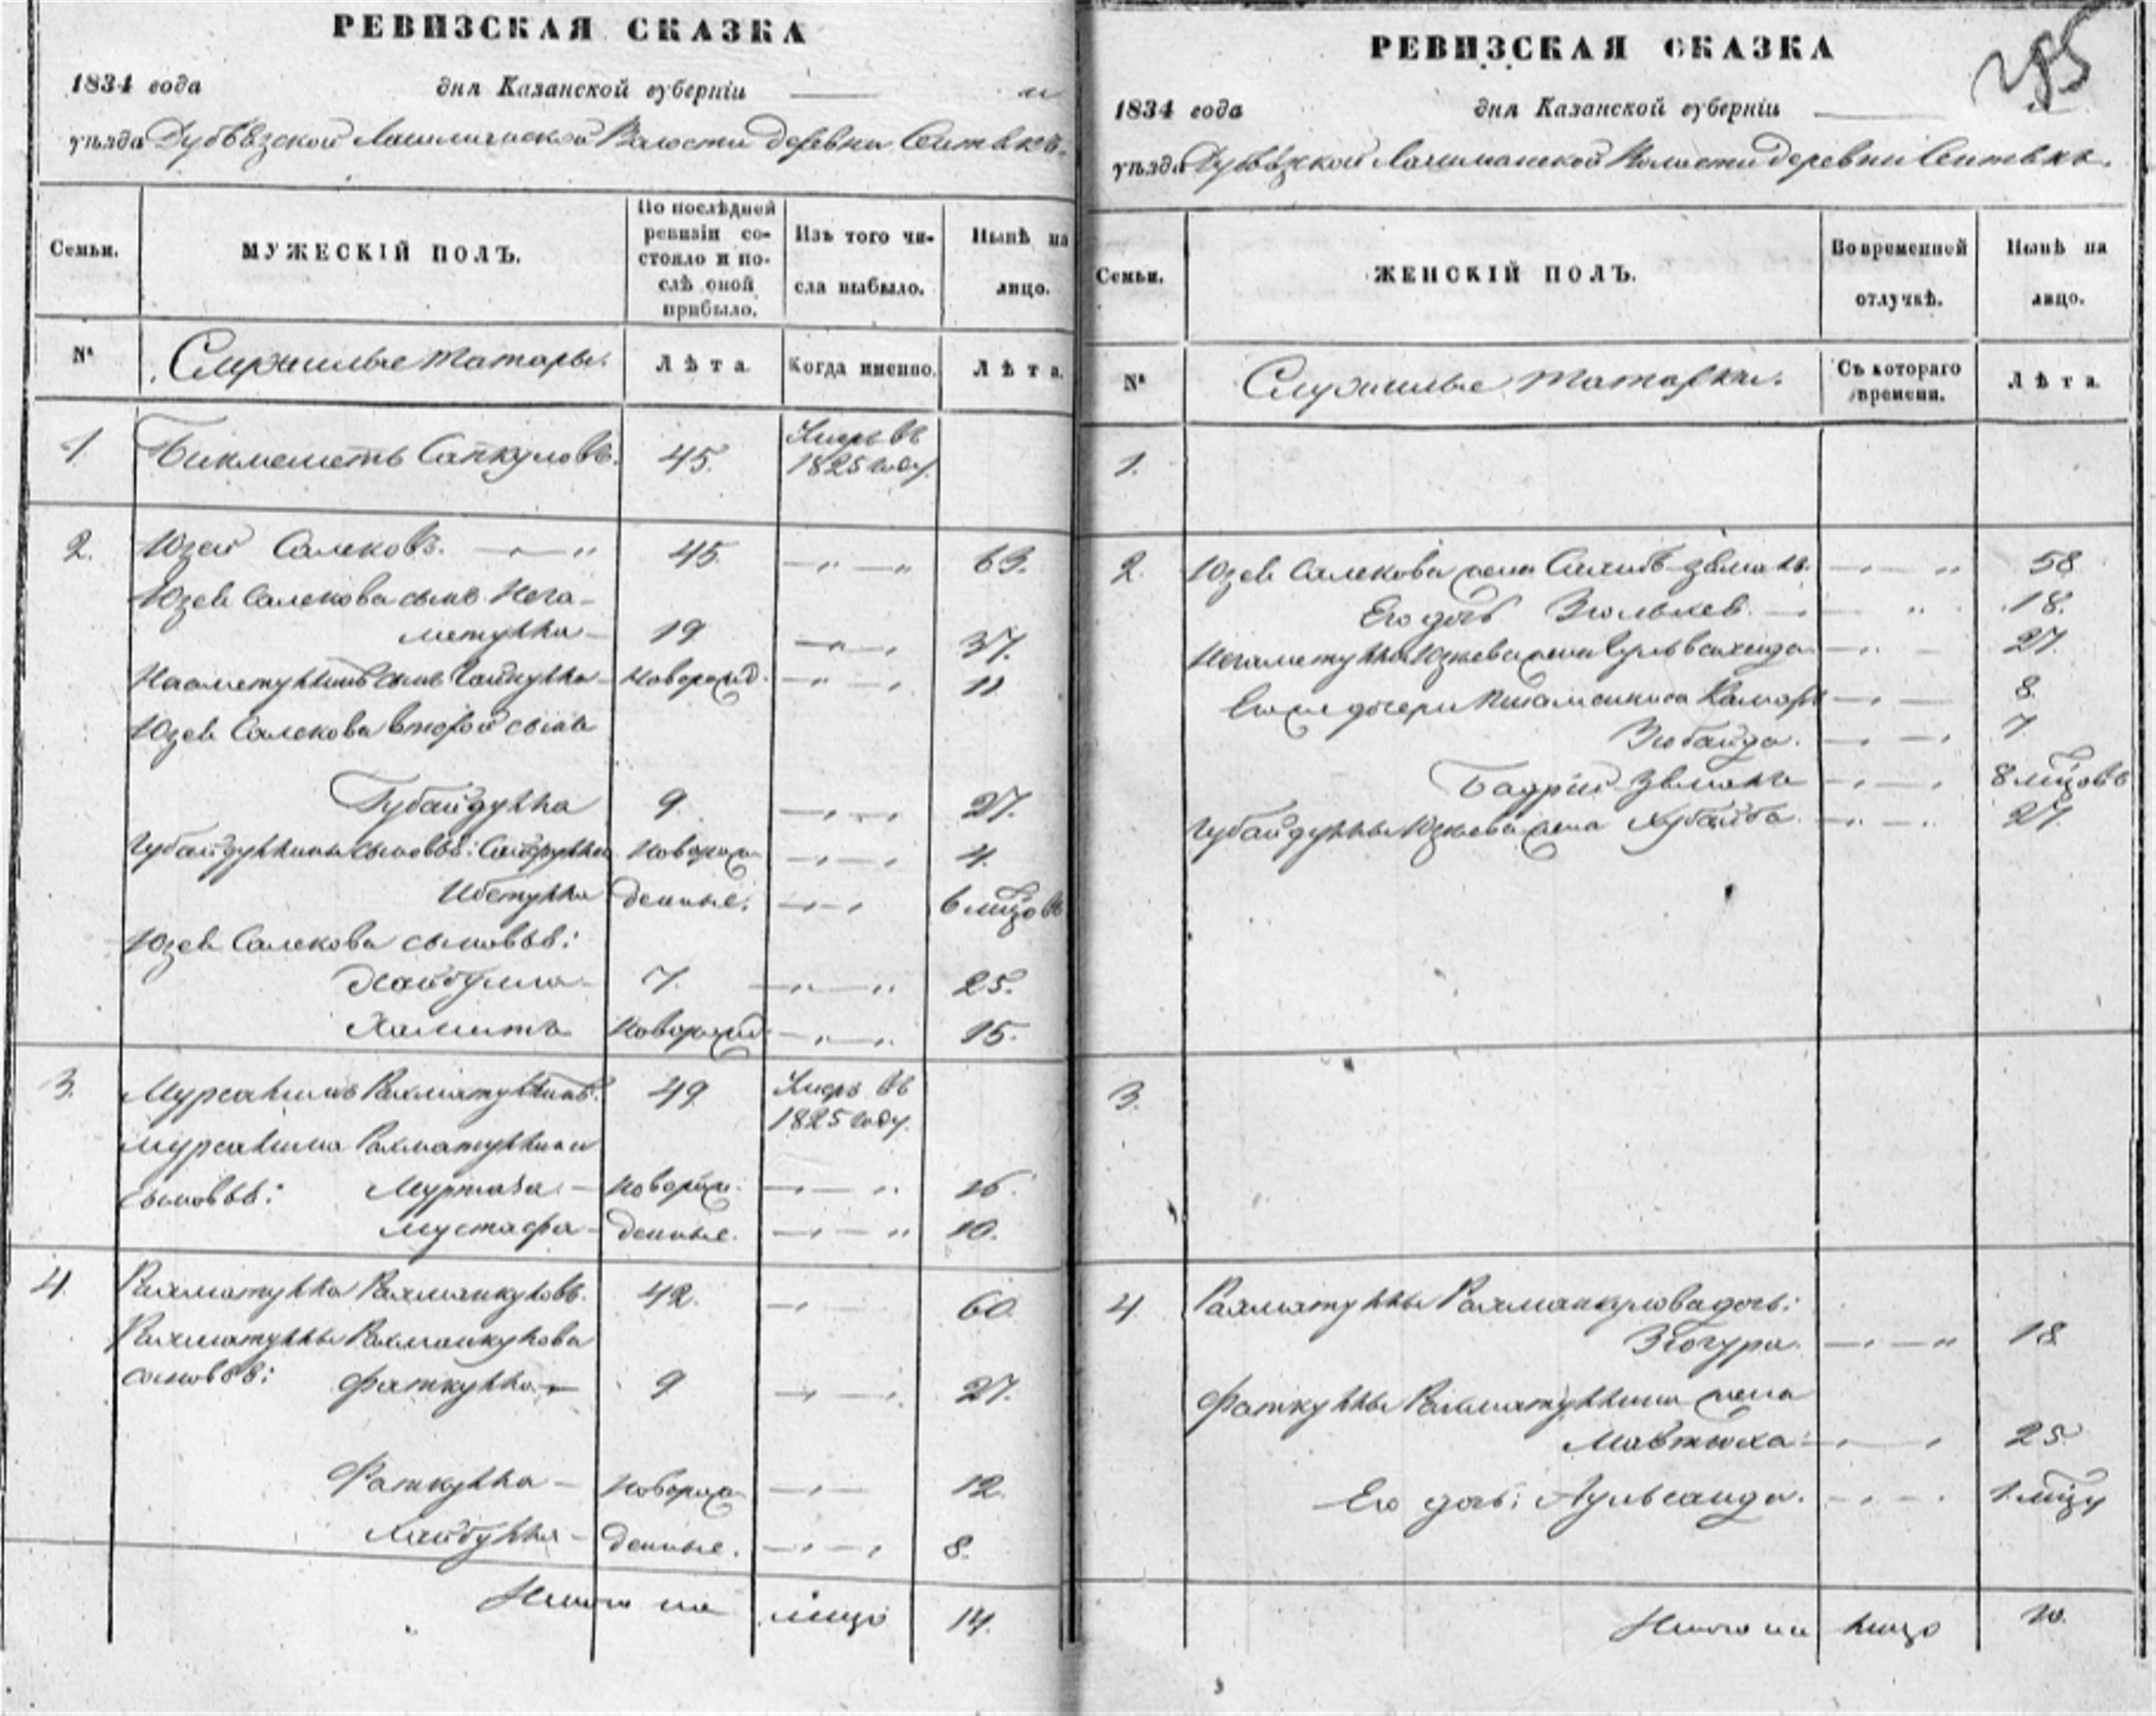 РЕВИЗСКАЯ СКАЗКА
1834 года дня Казанской губерніи
уѣзда Дубъязской Лашманской Волости деревни Ситьякъ.
Семьи.
МУЖЕСКІЙ ПОЛЪ.
По послѣдней ревизіи со-
стояло и по-
слѣ оной
прибыло.
Изъ того чи-
сла выбыло.
Нынѣ на
лицо.
№
Служилые татары.
Лѣта.
Когда именно.
Лѣта.
1 Бикмететь Сапкуловъ. 45. Умеръ въ
1825 году.
2. Юзей Салековъ. 45. 63.
Юзея Салекова сынъ Нега-
метулла 19 37.
сынъ новорожд. 11
Юзея Салекова второй сынъ
Губайдулла 9. 27.
Губайдуллины сыновья: новорож- 4.
денные. 6 мѣсяцовъ
Юзея Салекова сыновья:
7. 25.
Хамитъ новорожд. 15.
3. Рахматуллинъ. 49 Умеръ въ
1825 году.
Рахматуллина
сыновья: Муртаза новорож- 16.
Мустафа денные. 10.
4. Рахматулла Рахманкуловъ. 42. 60.
Рахматуллы Рахманкулова
сыновья: Фаткулла 9 27.
Фаткулла новорож- 12.
Хайбулла денные. 8.
Итого на лицо 14.
285
РЕВИЗСКАЯ СКАЗКА
1834 года дня Казанской губерніи
уѣзда Дубъязской Лашманской Волости деревни Ситьякъ.
Семьи.
ЖЕНСКІЙ ПОЛЪ.
Во временной
отлучкѣ.
Нынѣ на
лицо.
№
Служилые татарки.
Съ котораго
времени.
Лѣта.
1.
2. Юзея Салекова жена 58
Его дочь 18.
жена 27.
Его же дочери 8.
Зюбайда. 7
8 мѣсяцовъ
Губайдуллы Юзеева жена Хубайба. 27.
3.
4. Рахматуллы Рахманкулова дочь:
Зюгура. 18
Фаткуллы Рахматуллина жена
Мавтюха 25
Его дочь: 1. мѣсяцу
Итого на лицо 10.